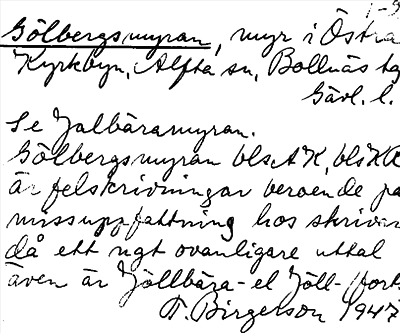 Gölbergsmyran, myr i Östra
Kyrkbyn, Alfta sn, Bollnäs
Gävl. l.
Se Jalbäramyran.
Gölbergsmyran bls AK, bls KA
är felskrivningar beroende på
missuppfattning hos skrivar
då ett ngt ovanligare uttal
även är Jöllbära- el Jöll- (forts
T. Birgerson 1947